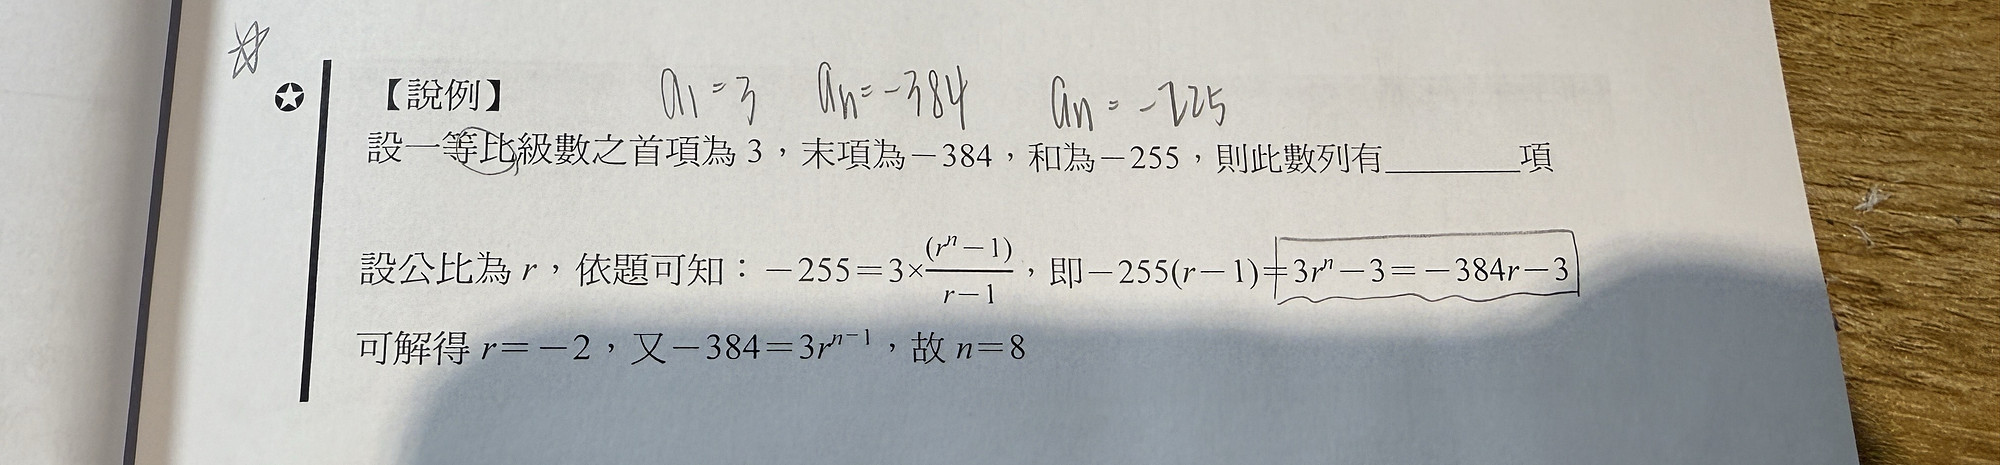 【說例】 a₁=3 aₙ=-384 aₙ=-225
設一等比級數之首項為 3，末項為－384，和為－255，則此數列有________項
設公比為 r，依題可知：－255＝3×(rⁿ－1)/(r－1)，即－255(r－1)＝3rⁿ－3＝－384r－3
可解得 r＝－2，又－384＝3rⁿ⁻¹，故 n＝8